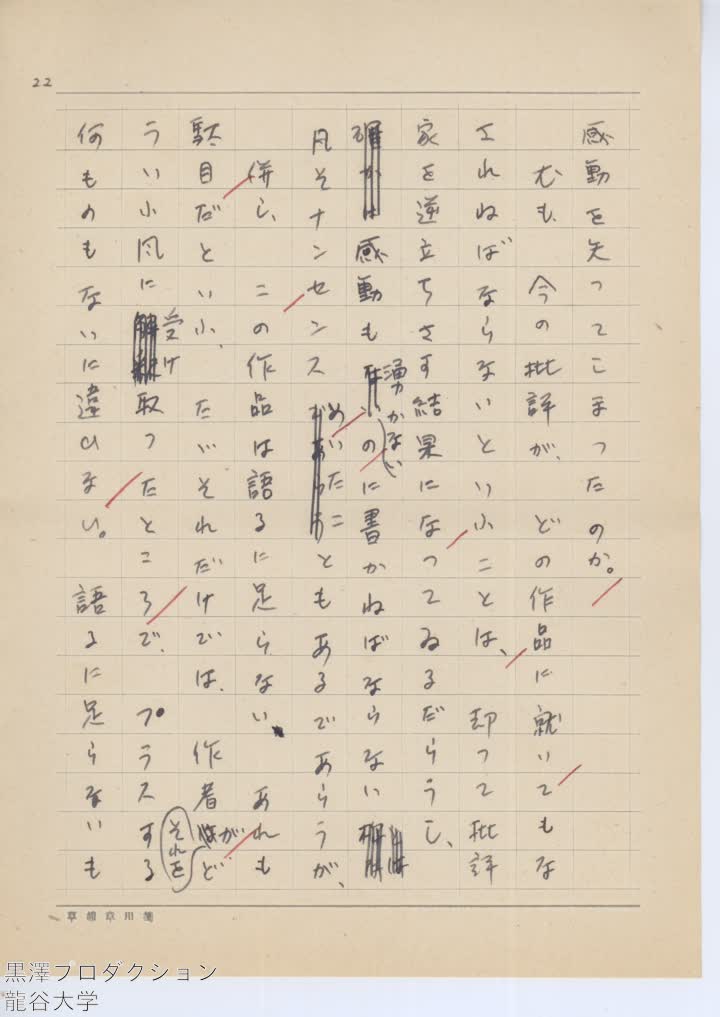 22
感動を失ってこまったのか。
尤も、今の批評が、どの作品に就いてもな
されねばならないといふことは、却って批評
家を逆立ちさす結果になってゐるだらうし、
感動も湧かないのに書かねばならない
凡そナンセンスめいたこともあるであらうが、
併し、この作品は語るに足らない、あれも
駄目だといふ、たゞそれだけでは、作者がそれをど
ういふ風に受け取ったところで、プラスする
何ものもないに違ひない。語るに足らないも
黒澤プロダクション
龍谷大学